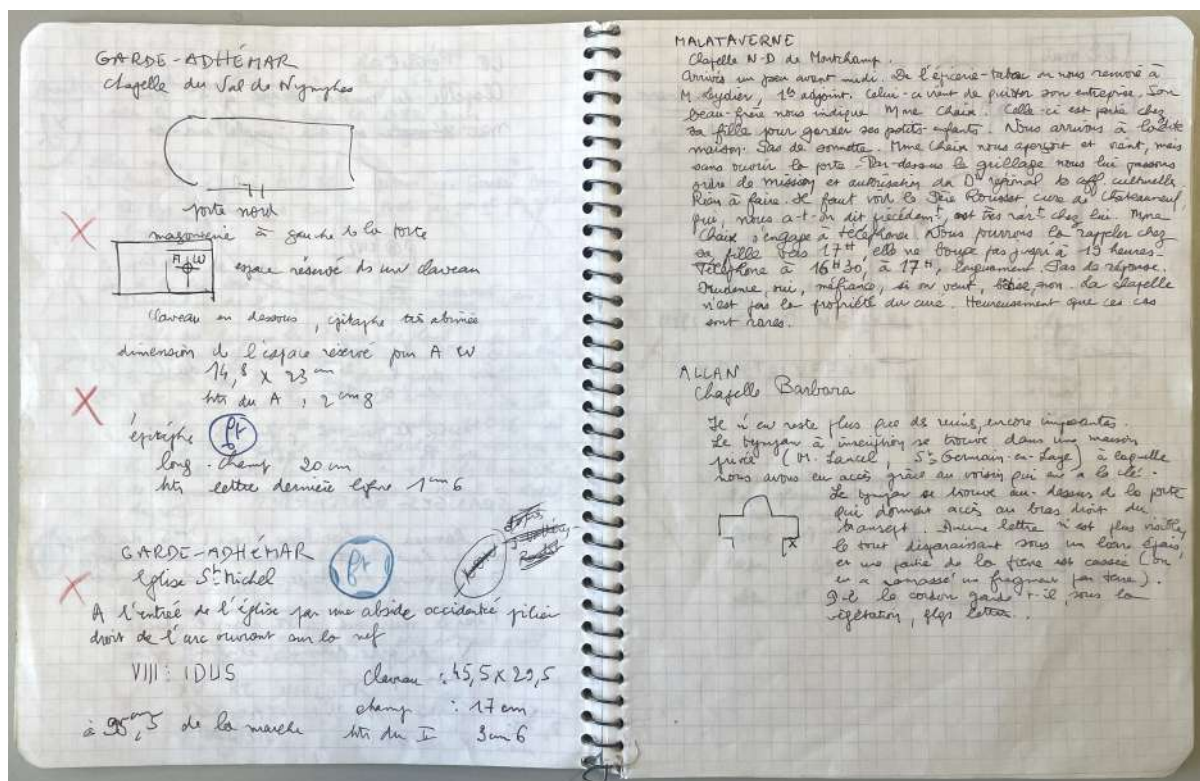 GARDE-ADHÉMAR
Chapelle du Val de Nymphes
porte nord
maçonnerie à gauche de la porte
A W
espace réservé ds un claveau
claveau en dessous, épitaphe très abimée
dimension de l'espace réservé pour A W
14,8 x 23 cm
htr du A, 2 cm 8
épitaphe ft
long. champ 20 cm
htr lettre dernière ligne 1 cm 6
GARDE-ADHÉMAR
église St Michel
ft
A l'entrée de l'église par une abside pilier
droit de l'arc ouvrant sur la nef
VIII : IDUS
claveau : 45,5 x 29,5
champ : 17 cm
à 95 cm,5 de la marche
htr du I 3 cm 6
MALATAVERNE
Chapelle N-D de Montchamp.
Arrivés un peu avant midi. De l'épicerie-tabac on nous renvoie à
M. Leydier, 1er adjoint. Celui-ci vient de quitter son entreprise. Son
beau-frère nous indique Mme Chaix. Celle-ci est partie chez
sa fille pour garder ses petits-enfants. Nous arrivons à ladite
maison. Pas de sonnette. Mme Chaix nous aperçoit et vient, mais
sans ouvrir la porte. Par-dessus le grillage nous lui passons
ordre de mission et autorisation du Dr régional des aff. culturelles.
Rien à faire. Il faut voir le Père Rousset curé de Chateauneuf,
qui, nous a-t-on dit précédemt, est très rart chez lui. Mme
Chaix s'engage à téléphoner. Nous pourrons la rappeler chez
sa fille vers 17H, elle ne bouge pas jusqu'à 19 heures.
Téléphone à 16H30, à 17H, longuement. Pas de réponse.
Prudence, oui, méfiance, si on veut, non. La chapelle
n'est pas la propriété du curé. Heureusement que ces cas
sont rares.
ALLAN
Chapelle Barbara
Il n'en reste plus que des ruines, encore imposantes.
Le tympan à inscription se trouve dans une maison
privée (M. Lancel, St Germain-en-Laye) à laquelle
nous avons eu accès grâce au voisin qui en a la clé.
Le tympan se trouve au-dessus de la porte
qui donnait accès au bras droit du
transept. Aucune lettre n'est plus visible,
le tout disparaissant sous un lierre épais,
et une partie de la pierre est cassée (on
en a ramassé un fragment par terre).
x
le cordon garde-t-il, sous la
végétation, qlqs lettres..